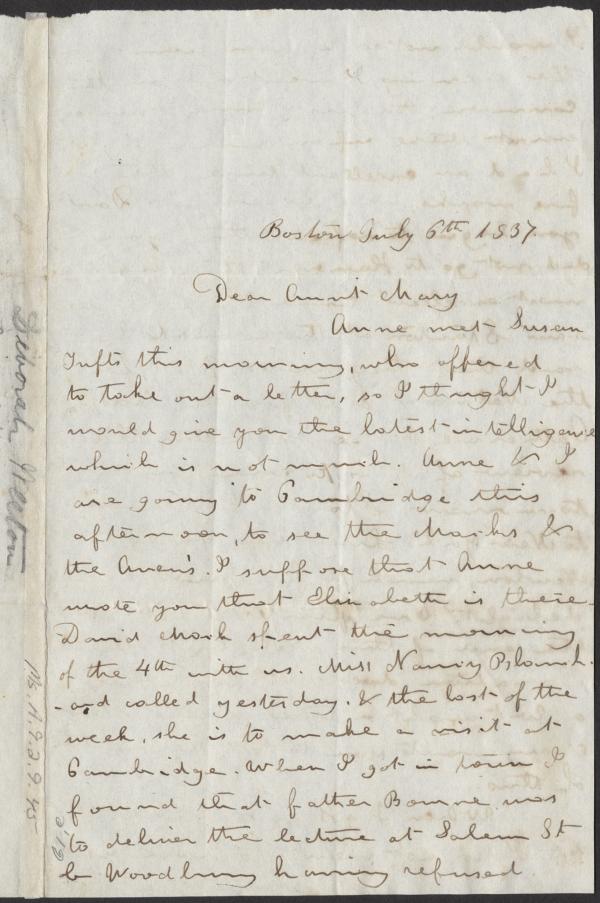 Boston July 6th 1837.
Dear Aunt Mary
Anne met Susan
Tufts this morning, who offered
to take out a letter, so I thought I
would give you the latest intelligence
which is not much. Anne & I
are going to Cambridge this
afternoon, to see the Macks &
the Aven's. I suppose that Anne
wrote you that Elizabeth is there.
David Mack spent the morning
of the 4th with us. Miss Nancy Blanch-
-ard called yesterday. & the last of the
week, she is to make a visit at
Cambridge. When I got in town I
found that father Bourne was
to deliver the lecture at Salem St
Woodbury having refused
Deborah Weston
Ms. A.9.2.9.45